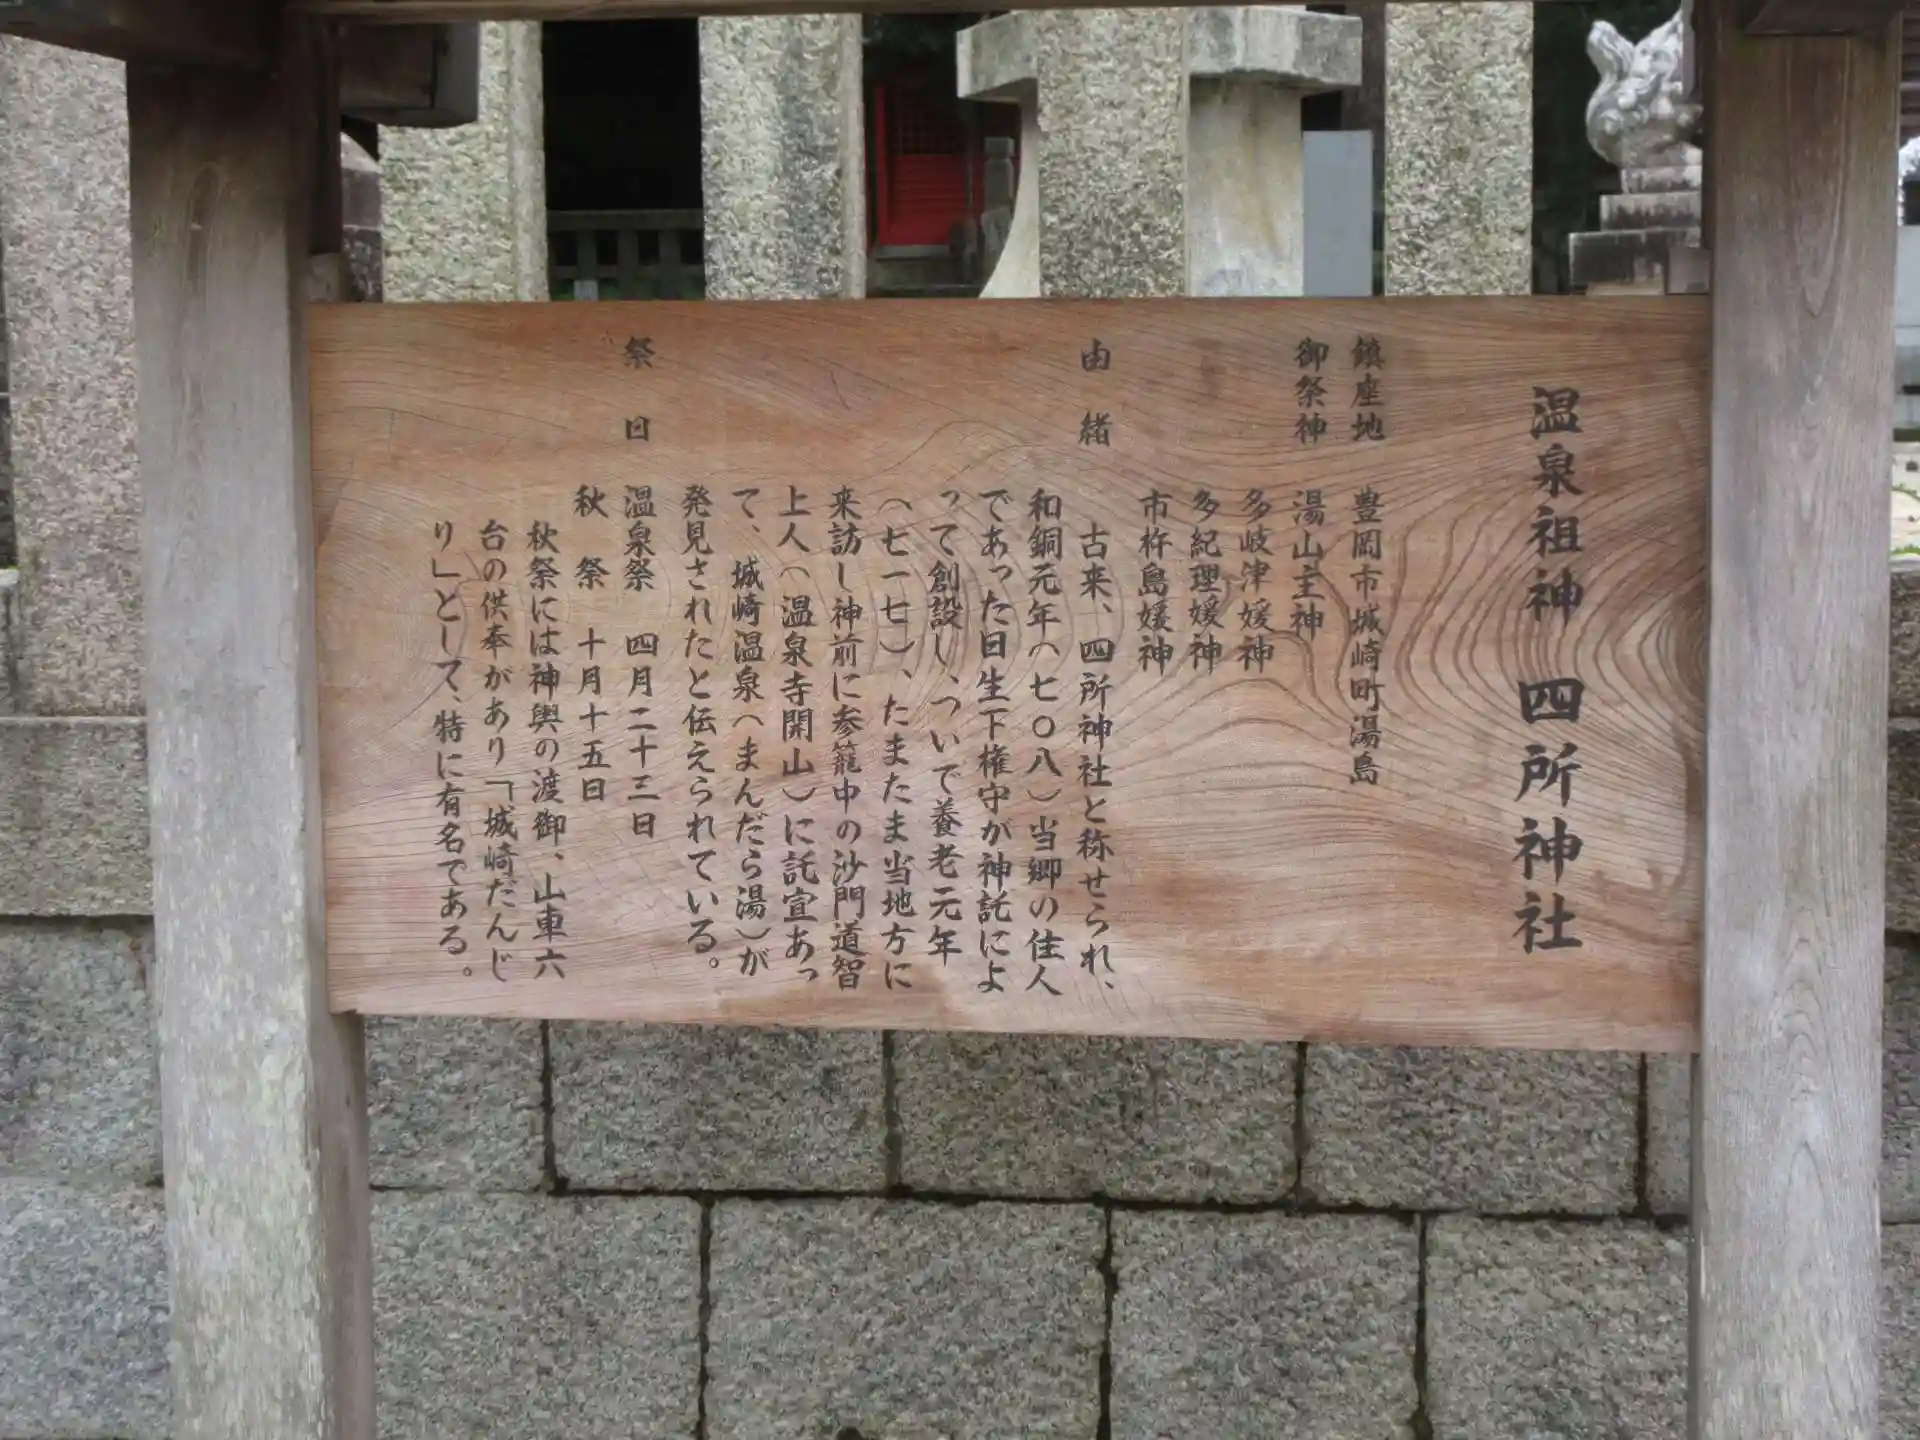 温泉祖神 四所神社
鎮座地 豊岡市城崎町湯島
御祭神 湯山主神
多岐津媛神
多紀理媛神
市杵島媛神
由緒 古来、四所神社と称せられ、
和銅元年(七〇八)当郷の住人
であった日生下権守が神託によ
って創設し、ついで養老元年
(七一七)、たまたま当地方に
来訪し神前に参籠中の沙門道智
上人(温泉寺開山)に託宣あっ
て、城崎温泉(まんだら湯)が
発見されたと伝えられている。
祭日 温泉祭 四月二十三日
秋祭 十月十五日
秋祭には神輿の渡御、山車六
台の供奉があり「城崎だんじ
り」として、特に有名である。